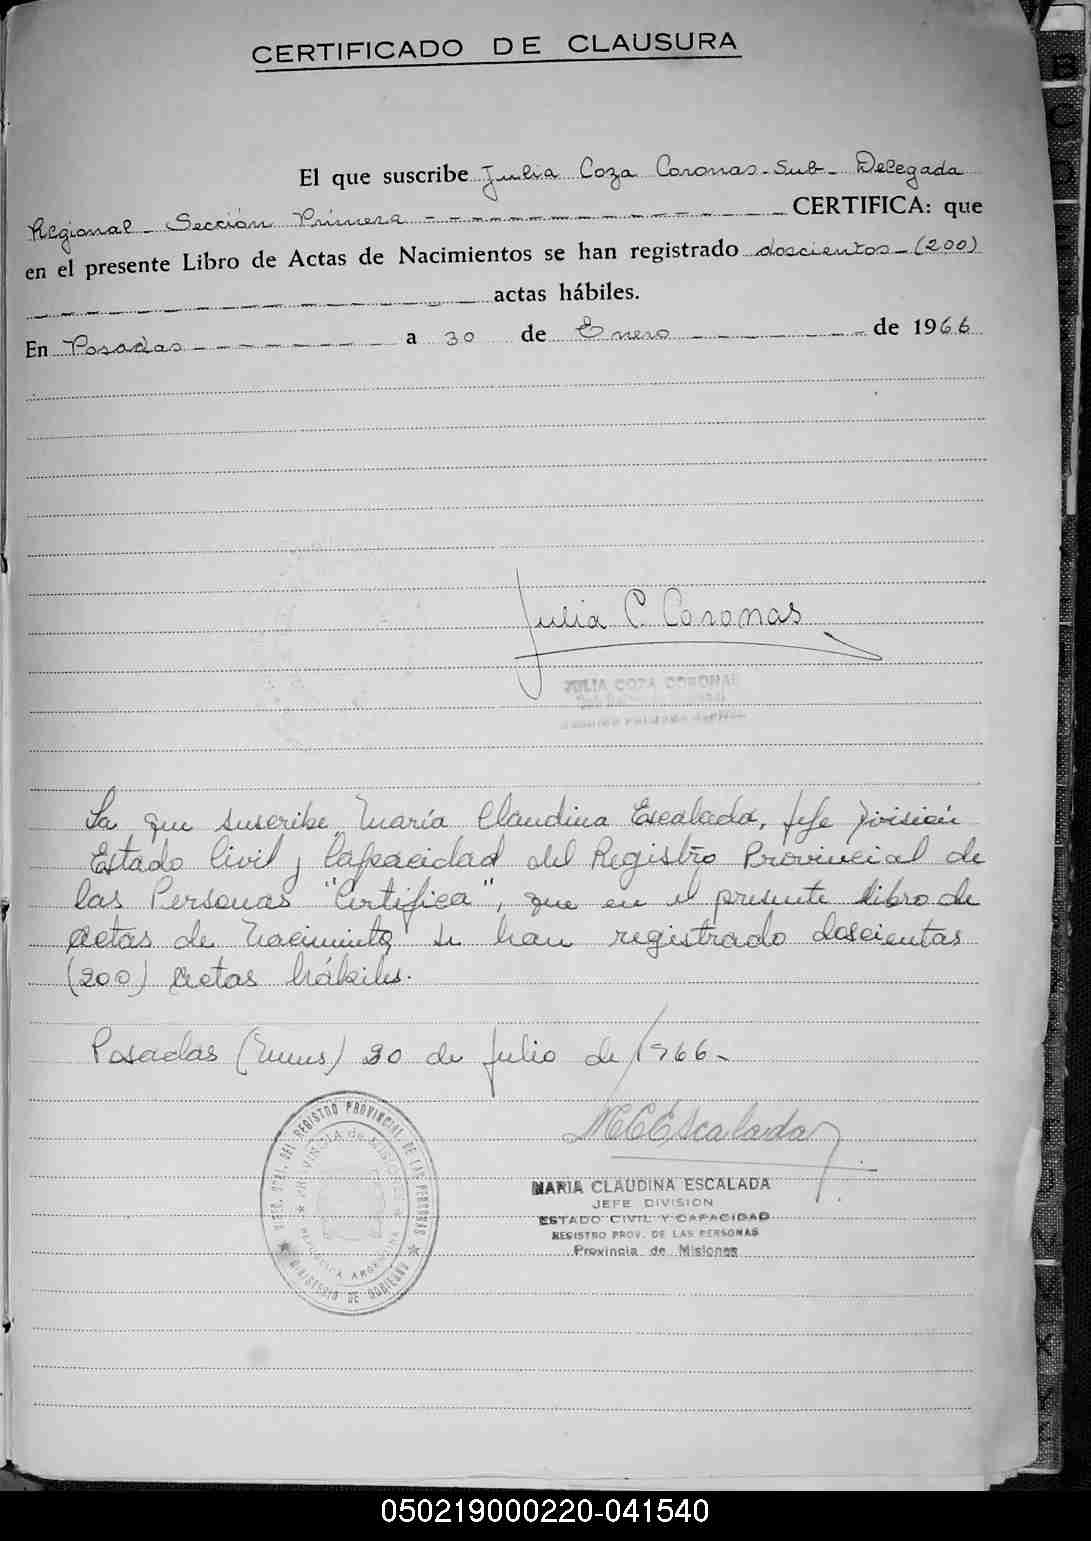 CERTIFICADO DE CLAUSURA
El que suscribe Julia Coza Coronas - Sub - Delegada
Regional - Sección Primera - - - - - - - - - - - - - CERTIFICA: que
en el presente Libro de Actas de Nacimientos se han registrado doscientos - (200)
- - - - - - - - - - - - - actas hábiles.
En Posadas - - - - - - - a 30 de Enero - - - - - - de 1966
Julia C. Coronas
JULIA COZA CORONAS
La que suscribe, María Claudina Escalada, Jefe División
Estado Civil y Capacidad del Registro Provincial de
las Personas "Certifica", que en el presente libro de
actas de nacimiento se han registrado doscientas
(200) actas hábiles.
Posadas (Mnes) 30 de Julio de 1966 -
MCEscalada
MARIA CLAUDINA ESCALADA
JEFE DIVISION
ESTADO CIVIL Y CAPACIDAD
REGISTRO PROV. DE LAS PERSONAS
Provincia de Misiones
GRAL. DEL REGISTRO PROVINCIAL DE LAS PERSONAS
MINISTERIO DE GOBIERNO
PROVINCIA de MISIONES
REPUBLICA ARGENTINA
B
C
D
X
050219000220-041540